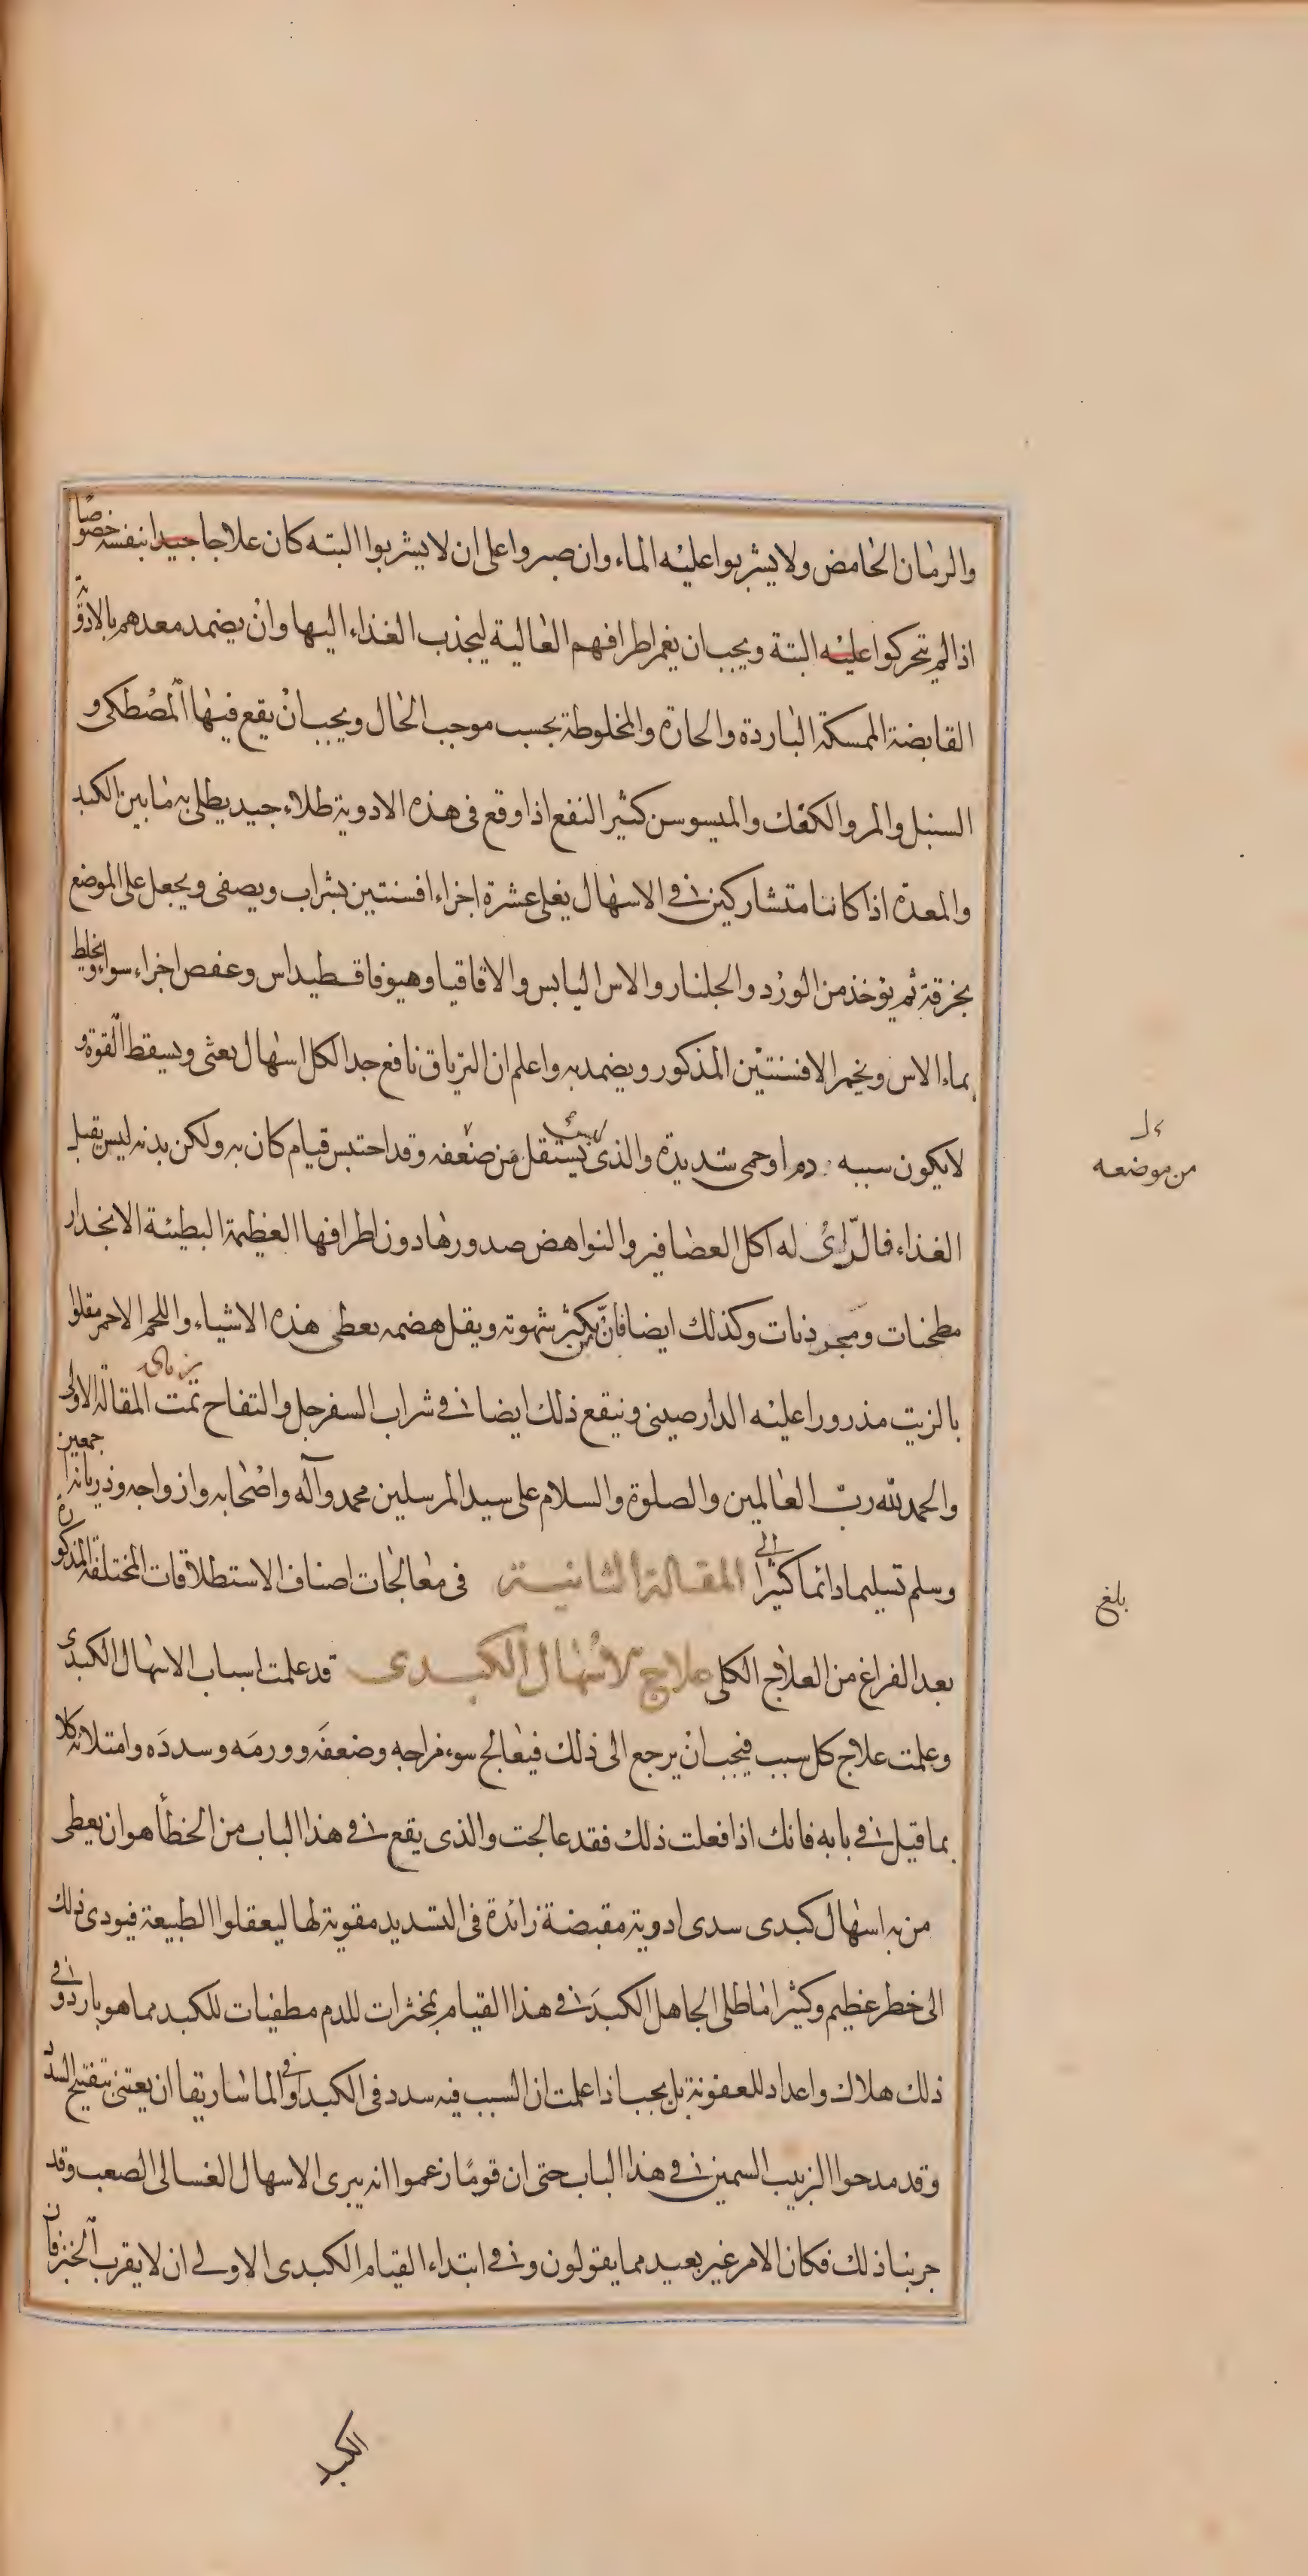 والرمان الحامض ولا يشربوا عليه الماء وان صبروا على ان لا يشربوا البته كان علاجا جيدا بنفسه خصوصًا
اذا لم يتحركوا عليه البتة ويجب ان يغمر اطرافهم العالية ليجذب الغذاء اليها وان يضمد معدهم بالادوية
القابضة الممسكة الباردة والحارة والمخلوطة بحسب موجب الحال ويجب ان يقع فيها المصطكى و
السنبل والمر والكعك والميسوسن كثير النفع اذا وقع فى هذه الادوية طلاء جيد يطلى به ما بين الكبد
والمعدة اذا كانتا متشاركتين فى الاسهال يغلى عشرة اجزاء افسنتين بشراب ويصفى ويجعل على الموضع
بخرقة ثم يوخذ من الورد والجلنار والاس اليابس والاقاقيا وهيوفاقسطيداس وعفص اجزاء سواء ويخلط
بماء الاس وبخمر الافسنتين المذكور ويضمد به واعلم ان الترياق نافع جدا لكل اسهال بعثى ويسقط القوة و
لا يكون سببه دم او حمى شديدة والذى يستقل من ضعفه وقد احتبس قيام كان به ولكن بدنه ليس يقبل
من موضعه
الغذاء فالرّائ له اكل العصافير والنواهض صدورها دون اطرافها العظيمة البطيئة الانحدار
مطجنات ومجرذنات وكذلك ايضا فان يكثر شهوته ويقل هضمه يعطى هذه الاشياء واللحم الاحمر مقلوا
بالزيت مذرورا عليه الدارصينى وينقع ذلك ايضا فى شراب السفرجل والتفاح تمت المقالة الاولى
والحمد لله ربّ العالمين والصلوة والسلام على سيد المرسلين محمد وآله واصحابه وازواجه وذرياته اجمعين
وسلم تسليما دائما كثيرا الى المقالة الثانية فى معالجات اصناف الاستطلاقات المختلفة المذكورة
بلغ
بعد الفراغ من العلاج الكلى علاج الاسهال الكبدى قد علمت اسباب الاسهال الكبدى
وعلمت علاج كل سبب فيجب ان يرجع الى ذلك فيعالج سوء مزاجه وضعفه وورمه وسدده وامتلائه كلا
بما قيل فى بابه فانك اذا فعلت ذلك فقد عالجت والذى يقع فى هذا الباب من الخطأ هو ان يعطى
من به اسهال كبدى سدى ادوية مقبضة زائدة فى التسديد مقوية لها ليعقلوا الطبيعة فيودى ذلك
الى خطر عظيم وكثيرا ما طلى الجاهل الكبد فى هذا القيام بمخثرات للدم مطفيات للكبد مما هو بارد وفى
ذلك هلاك واعداد للعفونة بل يجب اذا علمت ان السبب فيه سدد فى الكبد او فى الماساريقا ان يعتنى بتفتيح السدد
وقد مدحوا الزبيب السمين فى هذا الباب حتى ان قومًا زعموا انه يبرى الاسهال الغسالى الصعب وقد
جربنا ذلك فكان الامر غير بعيد مما يقولون وفى ابتداء القيام الكبدى الاولى ان لا يقرب الخبز فان
الكبد